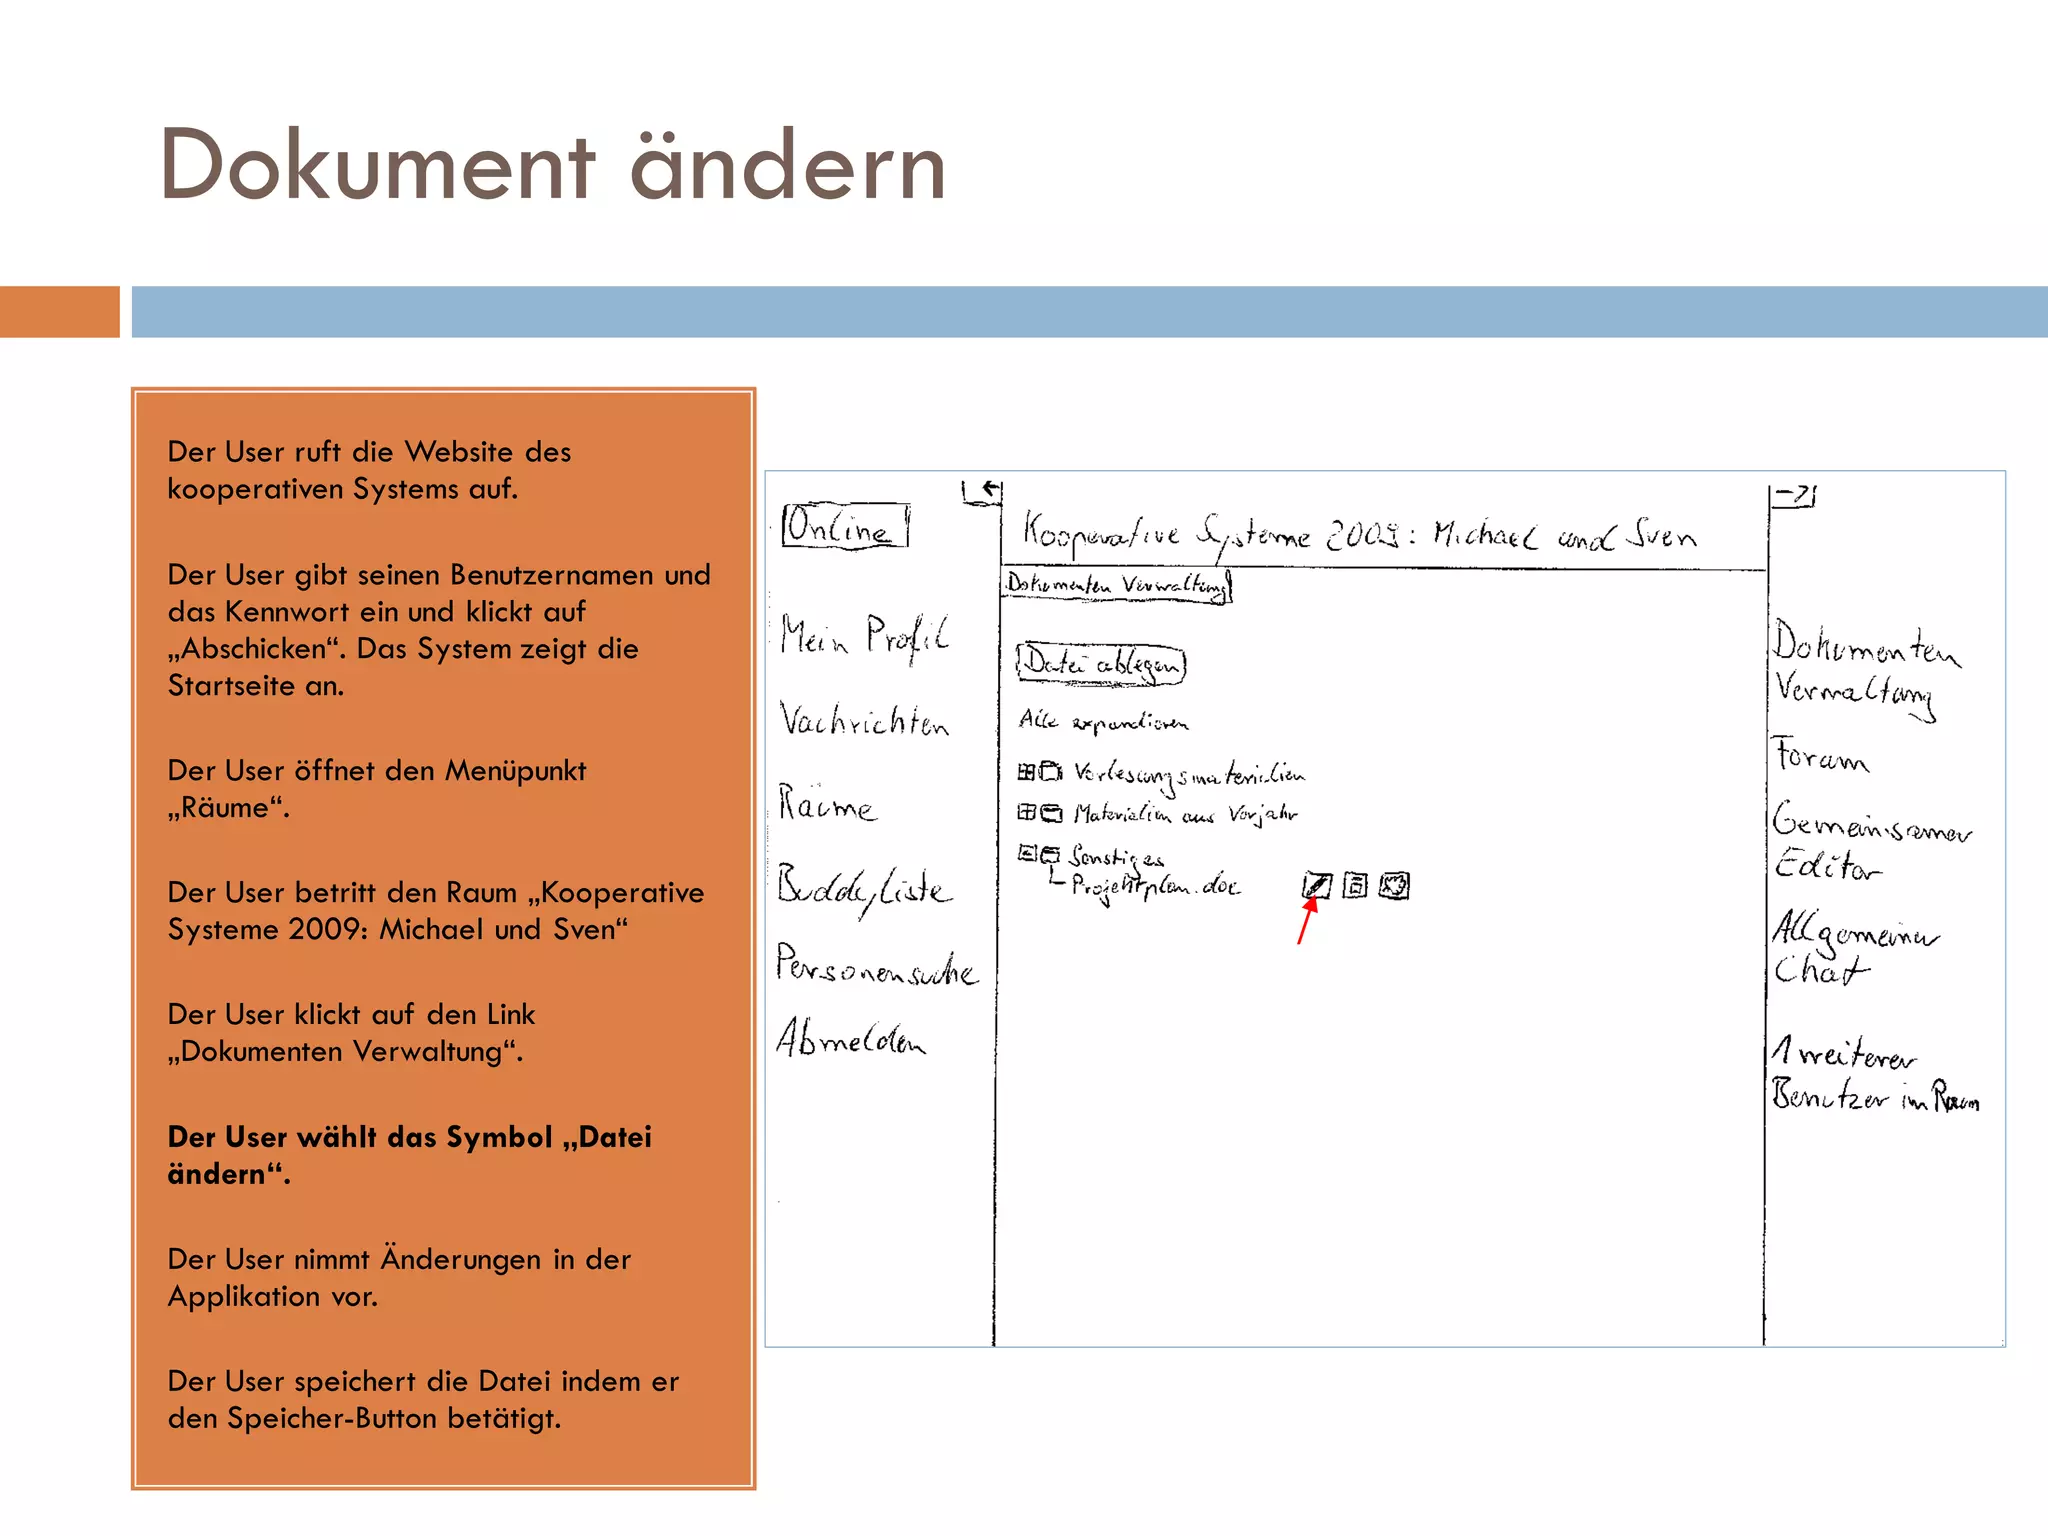 Dokument ändern
Der User ruft die Website des
kooperativen Systems auf.
Der User gibt seinen Benutzernamen und
das Kennwort ein und klickt auf
„Abschicken“. Das System zeigt die
Startseite an.
Der User öffnet den Menüpunkt
„Räume“.
Der User betritt den Raum „Kooperative
Systeme 2009: Michael und Sven“
Der User klickt auf den Link
„Dokumenten Verwaltung“.
Der User wählt das Symbol „Datei
ändern“.
Der User nimmt Änderungen in der
Applikation vor.
Der User speichert die Datei indem er
den Speicher-Button betätigt.
Online
Mein Profil
Nachrichten
Räume
Buddyliste
Personensuche
Abmelden
Kooperative Systeme 2009: Michael und Sven
Dokumenten Verwaltung
Datei ablegen
Alle expandieren
Vorlesungsmaterialien
Materialien aus Vorjahr
Sonstiges
Projektplan.doc
Dokumenten
Verwaltung
Forum
Gemeinsamer
Editor
Allgemeiner
Chat
1 weiterer
Benutzer im Raum